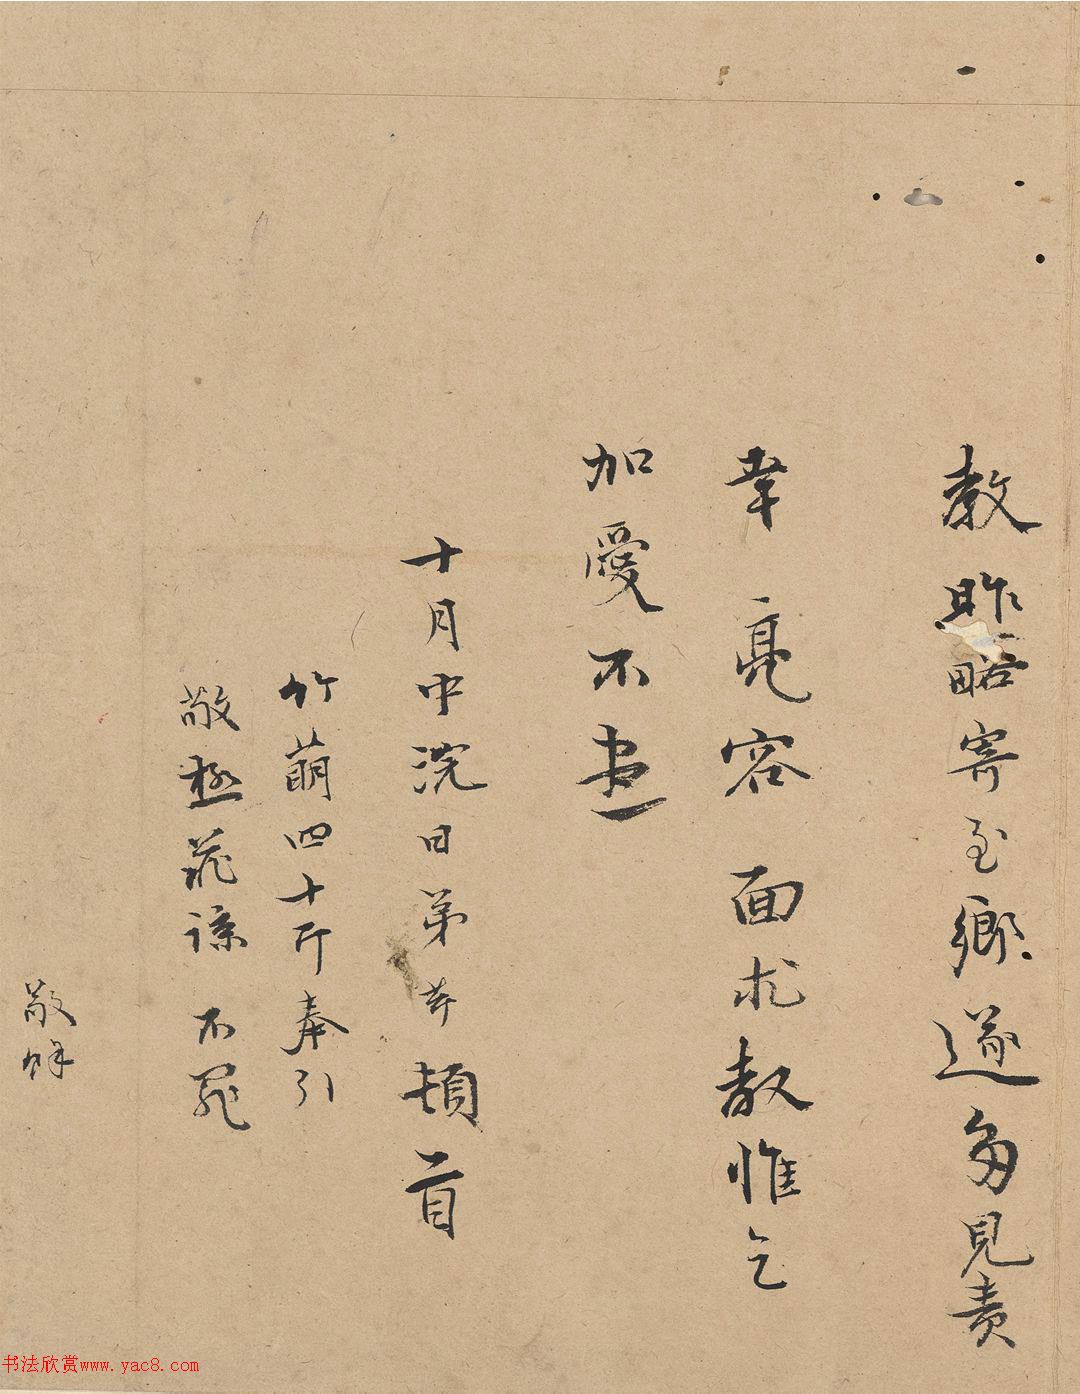 教昨略寄至鄉遂多見責
幸亮容面求教惟乞
加愛不盡
十月中浣日弟英頓首
竹萌四十斤奉引
敬極菲諒不罪
敬
书法欣赏www.yac8.com